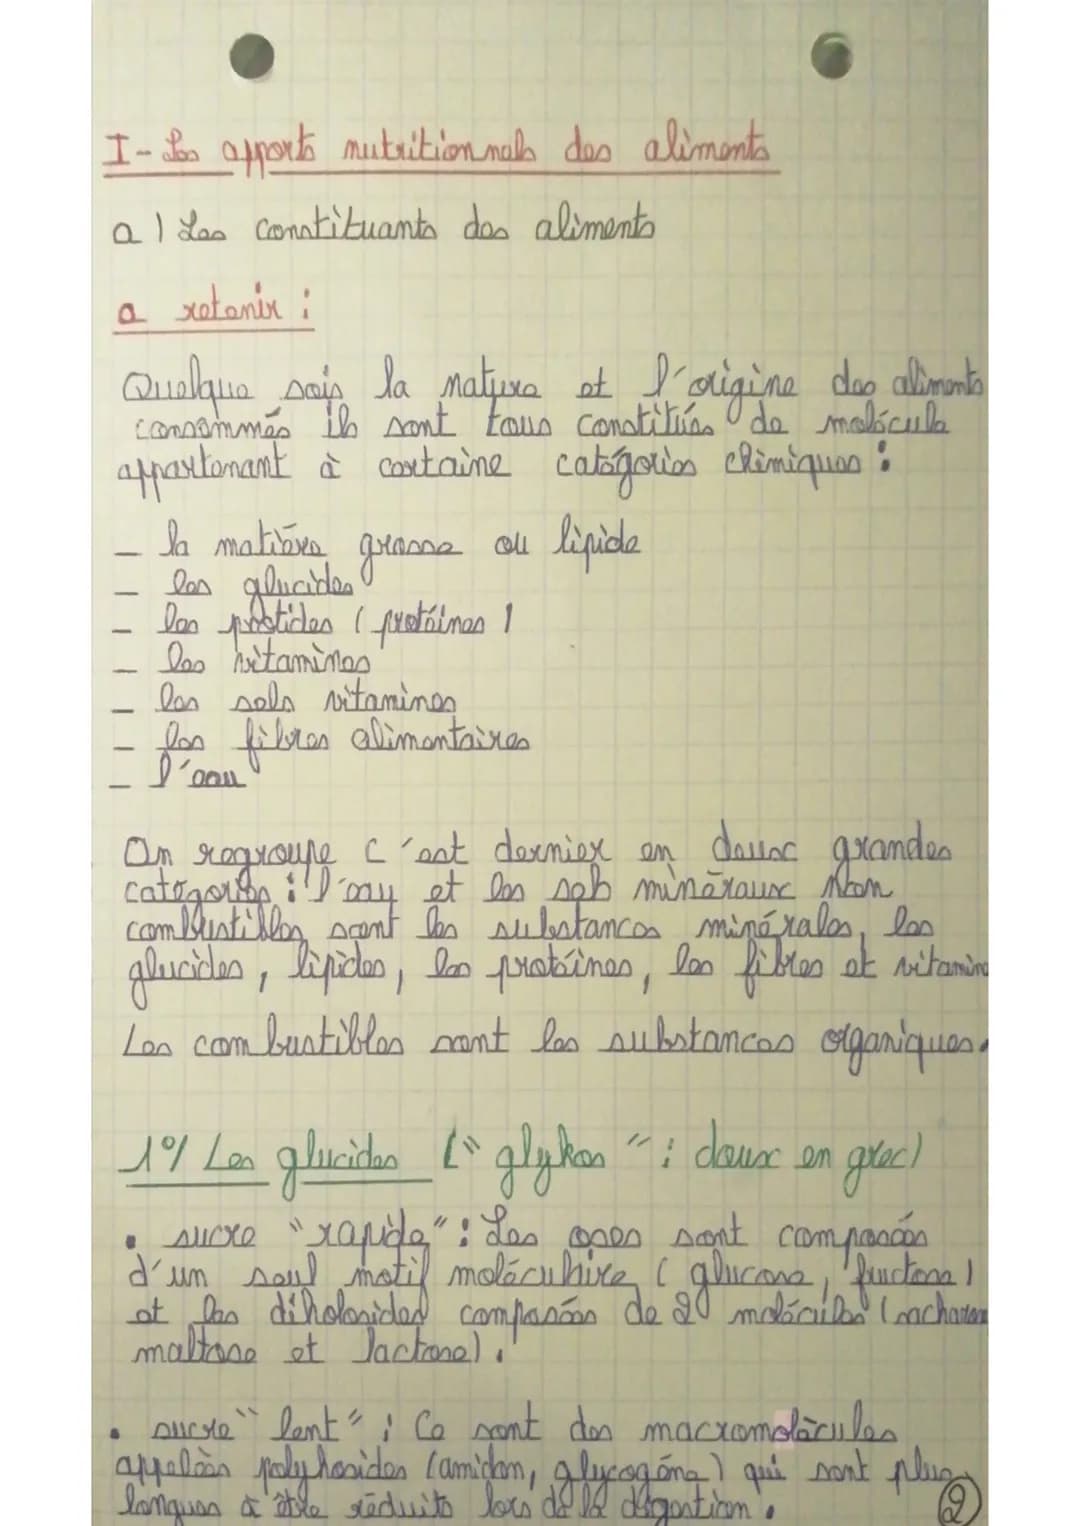 I- Les apports nutritionnels des aliments
a) Les constituants des aliments
a retenir :
Quelque sois la nature et l'origine des aliments
consommés ils sont tous constitués de molécule
appartenant à certaine catégories chimiques :
– la matière grasse ou lipide
– les glucides
– les protides (protéines)
– les vitamines
– les sels vitamines
– les fibres alimentaires
– l'eau
On regroupe c'est dernier en deux grandes
catégories : l'eau et les sels minéraux Non
combustibles sont les substances minérales, les
glucides, lipides, les protéines, les fibres et vitamine
Les combustibles sont les substances organiques.
1°/ Les glucides ("glykos" : doux en grec)
• sucre "rapide" : Les oses sont composés
d'un seul motif moléculaire (glucose, fructose)
et les diholosides composées de 2 molécules (saccharose
maltose et lactose).
• sucre "lent" : Ce sont des macromolécules
appelées polyhosides (amidon, glycogène) qui sont plus
longues à être réduits lors de la digestion.
2